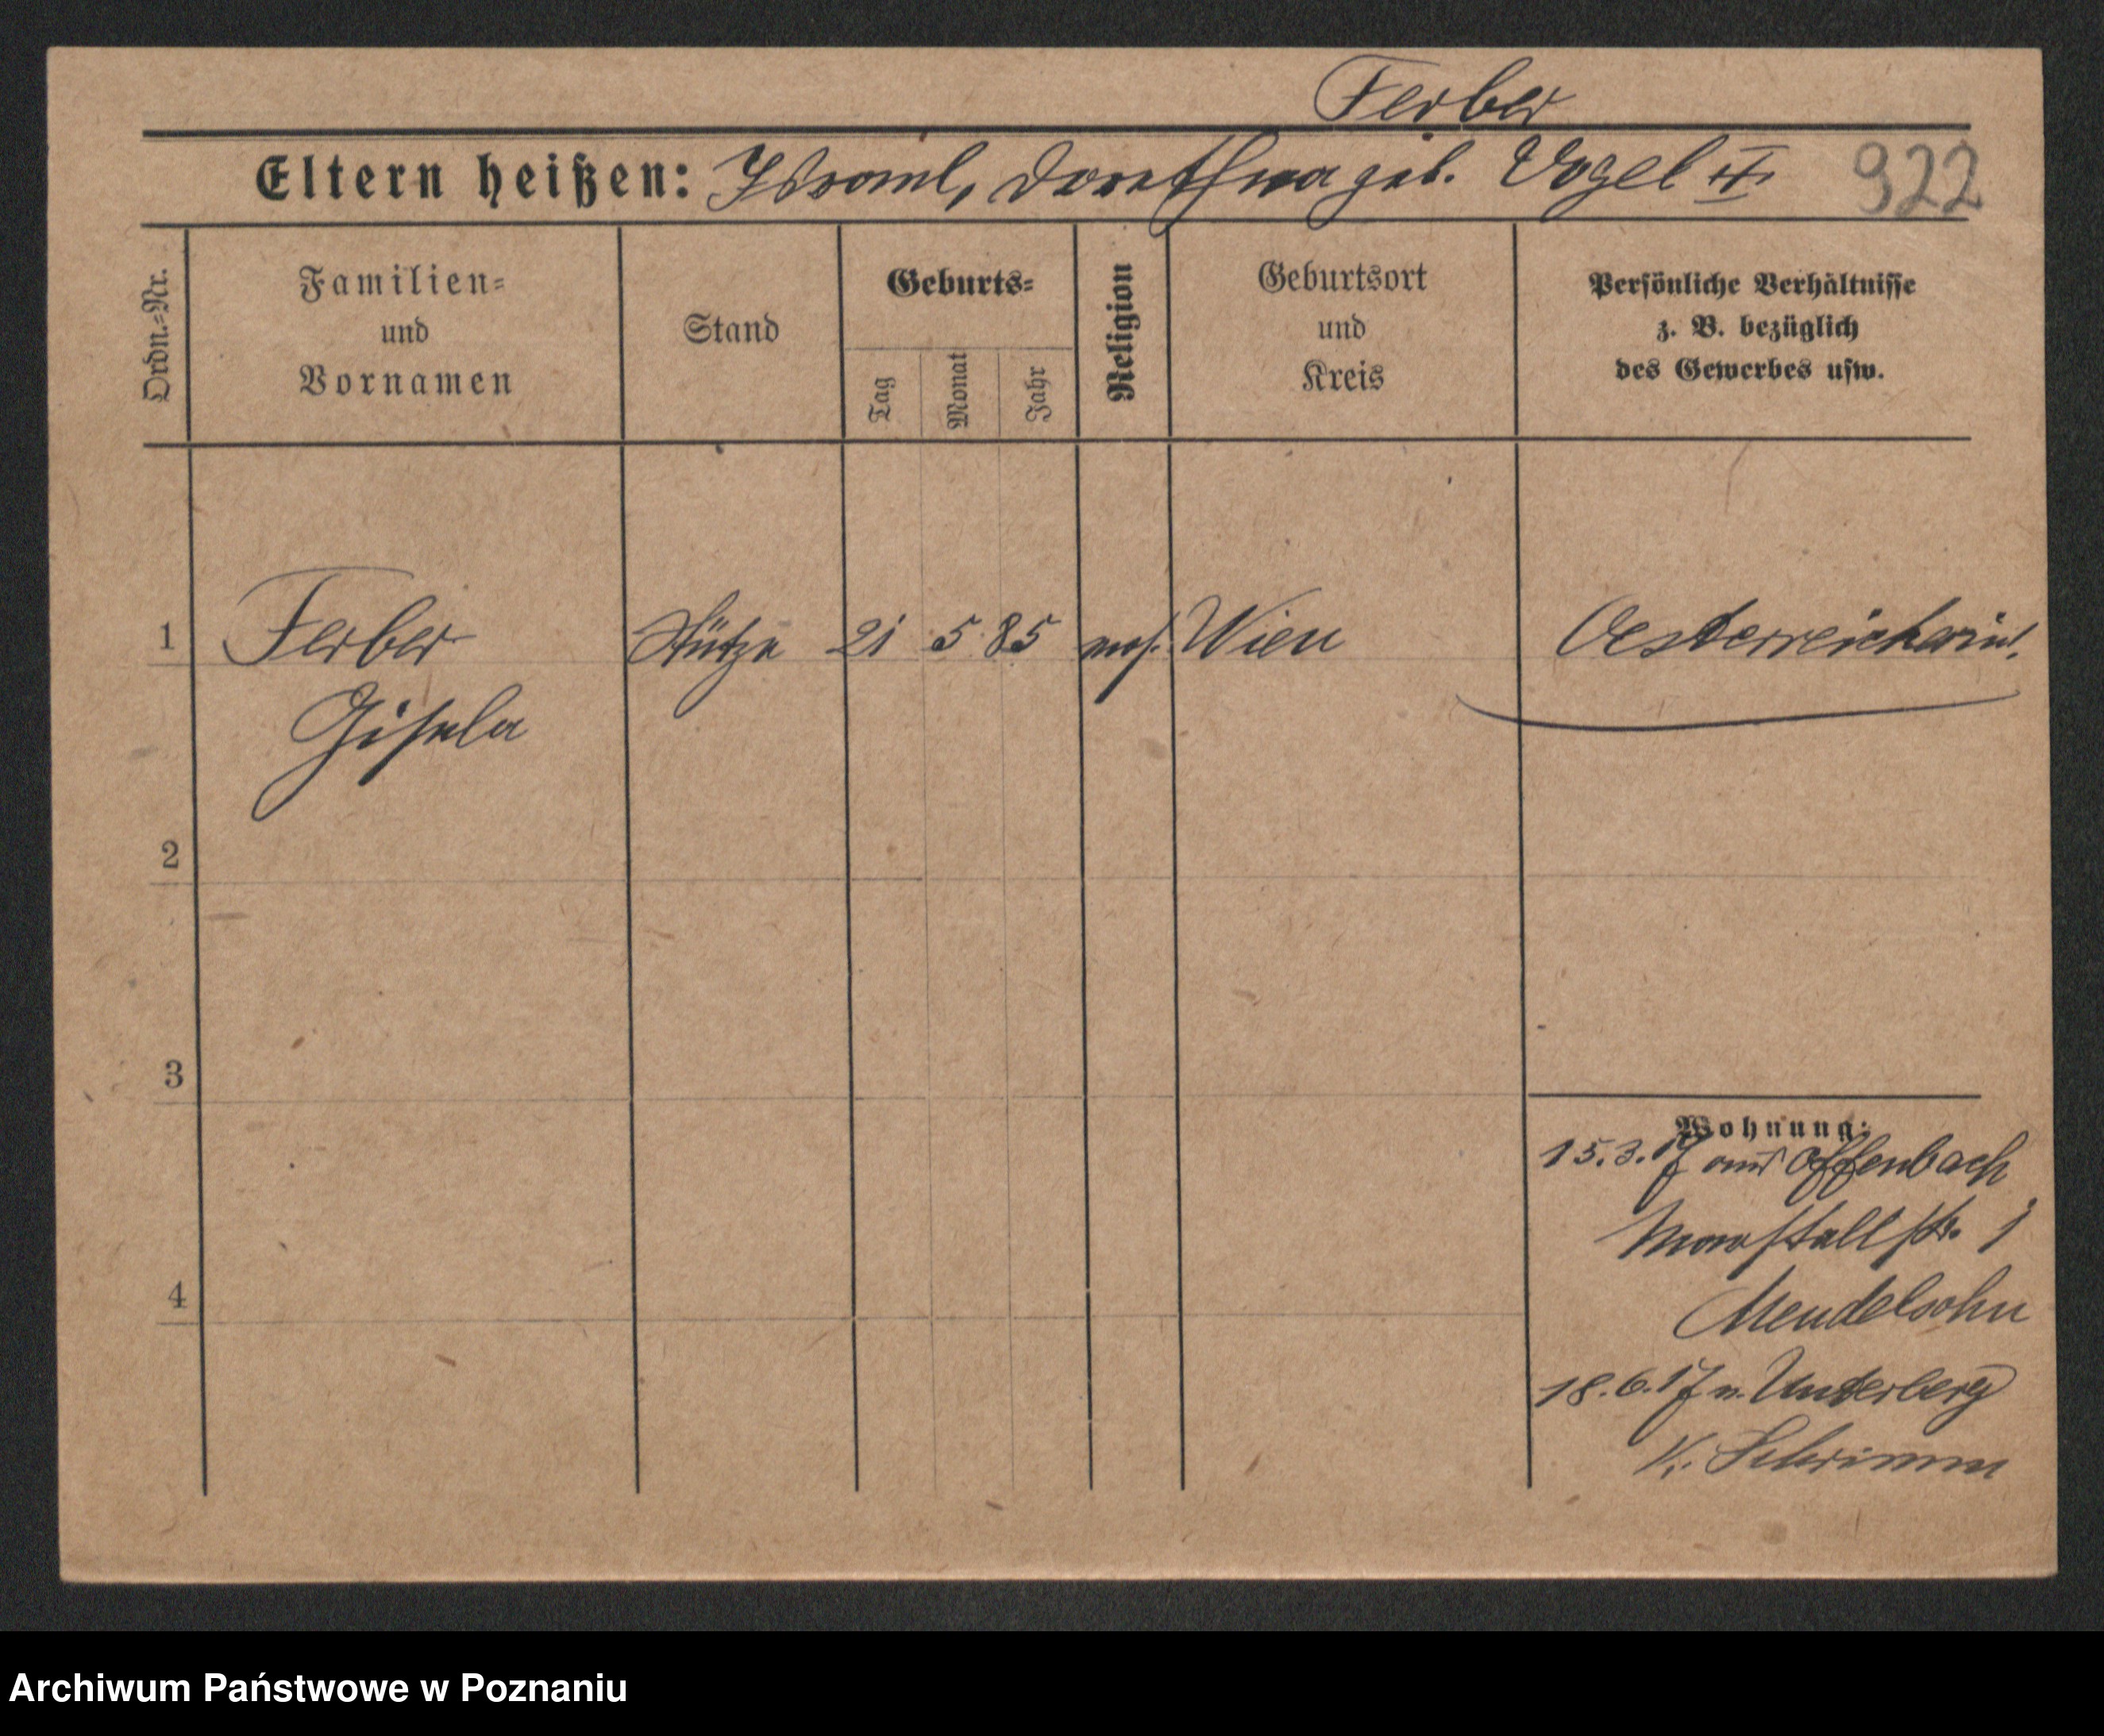 Ferber
Eltern heißen: Israel, Dorothea geb. Vogel II. 922
Ordn.=Nr.
Familien=
und
Vornamen
Stand
Geburts=
Tag
Monat
Jahr
Religion
Geburtsort
und
Kreis
Persönliche Verhältnisse
z. B. bezüglich
des Gewerbes usw.
1 Ferber Stütze 21 5 85 mos. Wien Oesterreicherin.
Gisela
2
3
Wohnung:
15.3.17 aus Offenbach
Marstallstr. 1
Mendelsohn
4
18.6.17 n. Unterberg
K. Schrimm
Archiwum Państwowe w Poznaniu